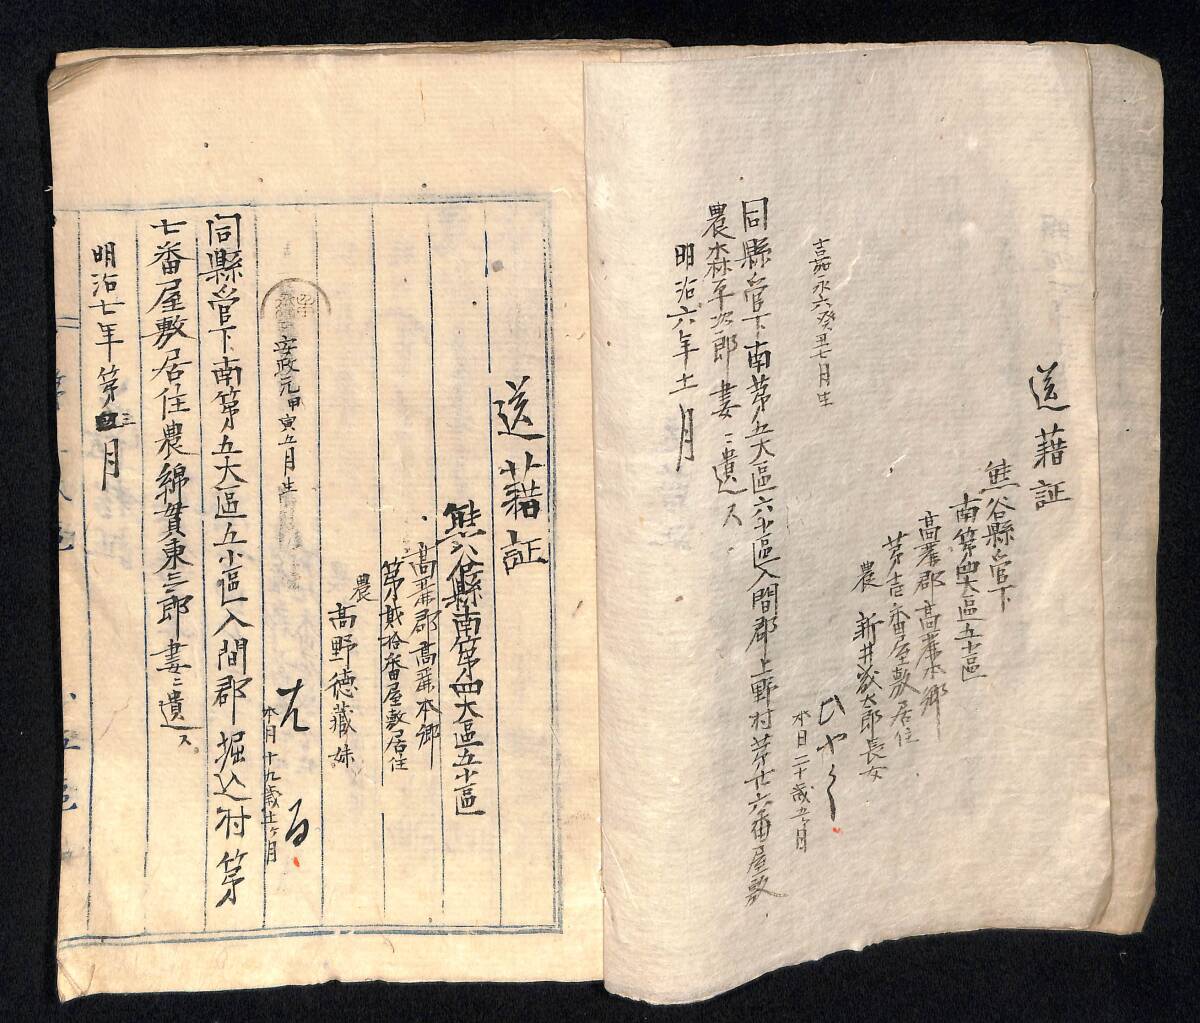 送藉証
熊谷縣管下
南第四大區五小區
高麗郡高麗本郷
第壱番屋敷居住
農 新井歳太郎長女
ひやく
本日二十歳五ヶ月
嘉永六癸丑七月生
同縣管下南第五大區六小區入間郡上野村第廿六番屋敷
農森平次郎妻ニ遺ス
明治六年十一月
送藉証
熊谷縣南第四大區五小區
高麗郡高麗本郷
第貳拾番屋敷居住
農 高野徳藏妹
本月十九歳十一ヶ月
安政元甲寅五月生
同縣管下南第五大區五小區入間郡堀込村第
七番屋敷居住農綿貫東三郎妻ニ遺ス
明治七年第三月